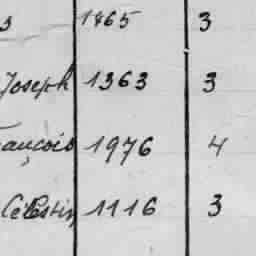 3 1465 3
Joseph 1363 3
ançois 1976 4
Célestin 1116 3